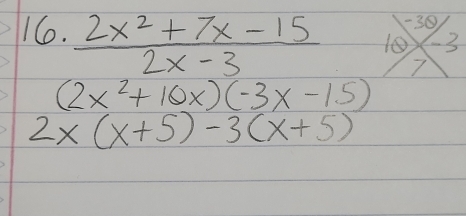 16. 2x² + 7x - 15
2x - 3
-30
10 -3
7
(2x² + 10x)(-3x - 15)
2x (x+5) - 3(x+5)